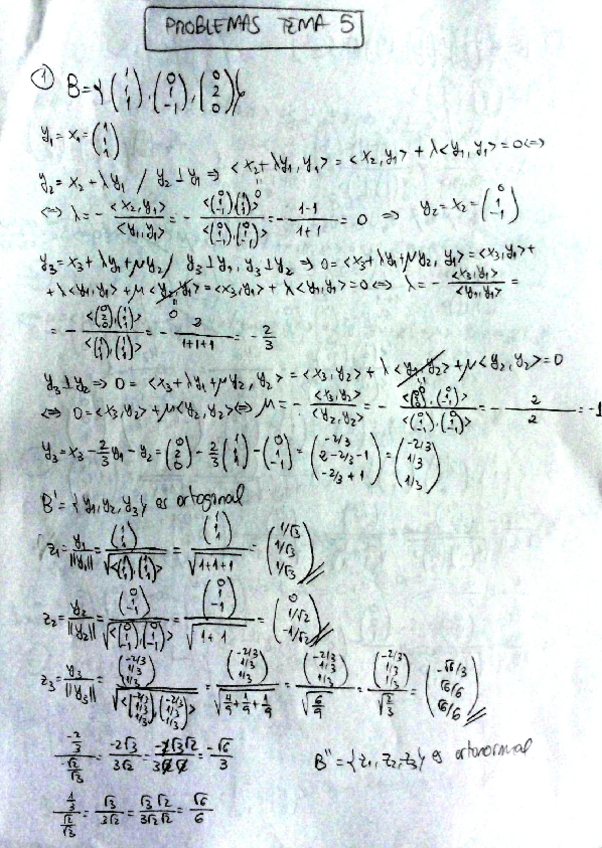 PROBLEMAS TEMA 5
① B={(1 1 1),(0 1 -1),(0 2 0)}
y₁=x₁=(1 1 1)
y₂=x₂+λy₁ / y₂⊥y₁ ⇒ <x₂+λy₁,y₁> = <x₂,y₁> + λ<y₁,y₁> =0⇔
⇔ λ=- <x₂,y₁>/<y₁,y₁> = - <(0 1 -1),(1 1 1)>/<(0 1 -1),(0 1 -1)> = - (1-1)/(1+1) = 0 ⇒ y₂=x₂=(0 1 -1)
y₃=x₃+λy₁+μy₂ / y₃⊥y₁, y₃⊥y₂ ⇒ 0=<x₃+λy₁+μy₂, y₁>=<x₃,y₁>+
+λ<y₁,y₁>+μ<y₂,y₁>=<x₃,y₁>+λ<y₁,y₁>=0⇔ λ=- <x₃,y₁>/<y₁,y₁> =
=- <(0 2 0),(1 1 1)>/<(1 1 1),(1 1 1)> =- 2/(1+1+1) = - 2/3
y₃⊥y₂ ⇒ 0= <x₃+λy₁+μy₂, y₂> = <x₃,y₂> + λ<y₁,y₂> +μ<y₂,y₂>=0
⇔ 0=<x₃,y₂>+μ<y₂,y₂>⇔ μ=- <x₃,y₂>/<y₂,y₂> = - <(0 2 0),(0 1 -1)>/<(0 1 -1),(0 1 -1)> = - 2/2 =-1
y₃=x₃-2/3y₁-y₂=(0 2 0)-2/3(1 1 1)-(0 1 -1)=(-2/3 2-2/3-1 -2/3+1)=(-2/3 1/3 1/3)
B'={y₁,y₂,y₃} es ortogonal
z₁=y₁/||y₁||=(1 1 1)/√<(1 1 1),(1 1 1)>=(1 1 1)/√1+1+1=(1/√3 1/√3 1/√3)
z₂=y₂/||y₂||=(0 1 -1)/√<(0 1 -1),(0 1 -1)>=(0 1 -1)/√1+1=(0 1/√2 -1/√2)
z₃=y₃/||y₃||=(-2/3 1/3 1/3)/√<(-2/3 1/3 1/3),(-2/3 1/3 1/3)>=(-2/3 1/3 1/3)/√4/9+1/9+1/9=(-2/3 1/3 1/3)/√6/9=(-2/3 1/3 1/3)/√2/3=(-√6/3 √6/6 √6/6)
(-2/3)/(√2/√3)=-2√3/3√2=-2√3√2/3√2√2=-√6/3
B''={z₁,z₂,z₃} es ortonormal
(1/3)/(√2/√3)=√3/3√2=√3√2/3√2√2=√6/6